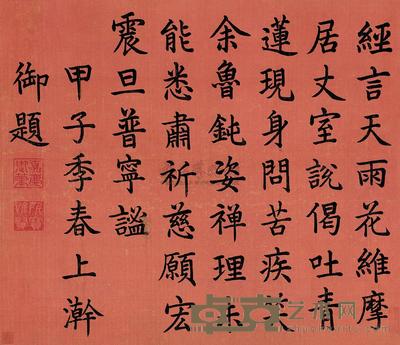 經言天雨花維摩
居丈室說偈吐青
蓮現身問苦疾
余魯鈍姿禪理未
能悉肅祈慈願宏
震旦普寧謐
甲子季春上澣
御題